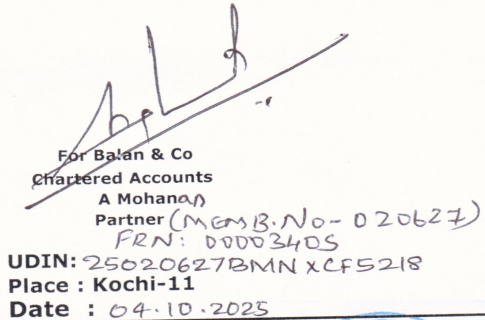 For Balan & Co
Chartered Accounts
A Mohanan
Partner (MEMB.No- 020627)
FRN: 000034OS
UDIN: 25020627BMNXCF5218
Place : Kochi-11
Date : 04.10.2025